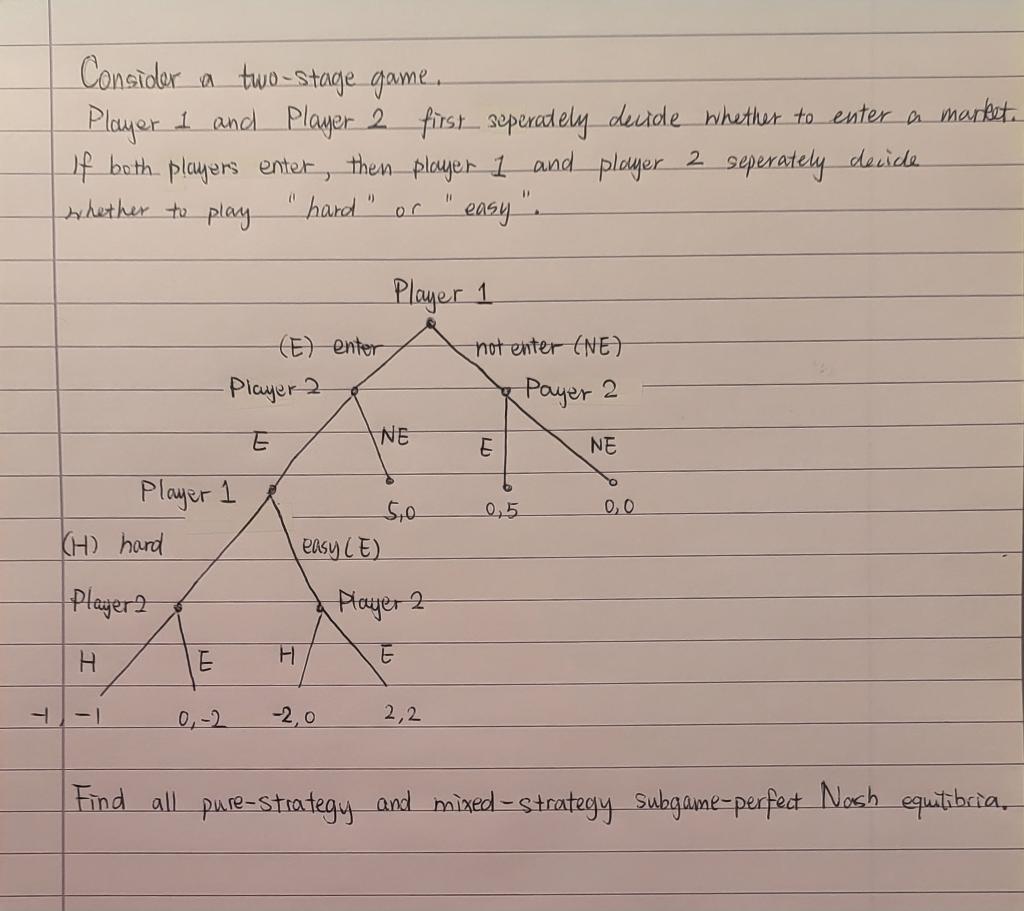 Consider a two-stage game.
Player 1 and Player 2 first seperately decide whether to enter a market.
If both players enter, then player 1 and player 2 seperately decide
whether to play "hard" or "easy".
Player 1
(E) enter not enter (NE)
Player 2 Payer 2
E NE E NE
Player 1 5,0 0,5 0,0
(H) hard easy (E)
Player 2 Player 2
H E H E
-1, -1 0,-2 -2,0 2,2
Find all pure-strategy and mixed-strategy subgame-perfect Nash equitibria.